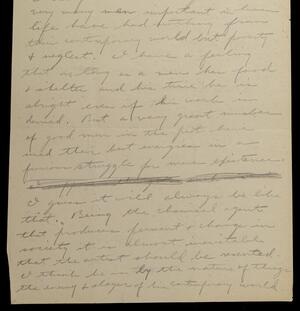 very many men important in human
life have had nothing from
their contemporary world but poverty
& neglect. I have a feeling
that as long as a man has food
& shelter and his time he is
alright even if his work is
denied. But a very great number
of good men in the past have
used their best energies in a
furious struggle for mere existence.
I guess it will always be like
that. Being the chemical agent
that produces ferment & change in
society it is almost inevitable
that the artist should be resented.
I think he is by the nature of things
the enemy & slayer of his contemporary world